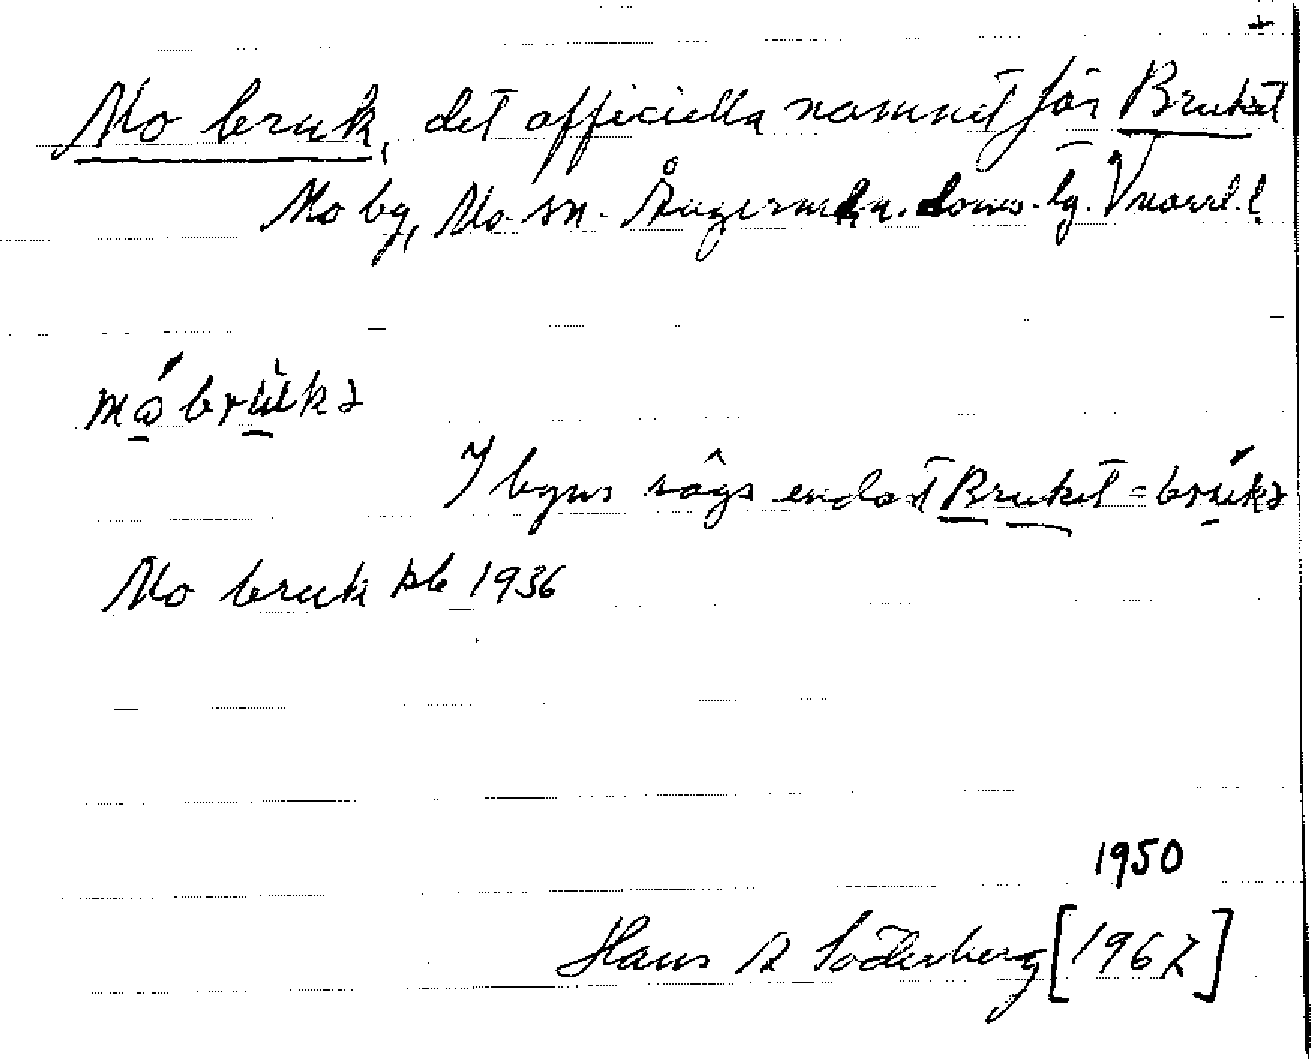 +
Mo bruk, det officiella namnet för Bruket
Mo by, Mo sn. Ångermanl. n. doms. tg. Vnorrl. l.
mó brùkə
I byns sägs endast Bruket = brúkə
Mo bruk kb 1936
1950
Hans A Söderberg [1967]